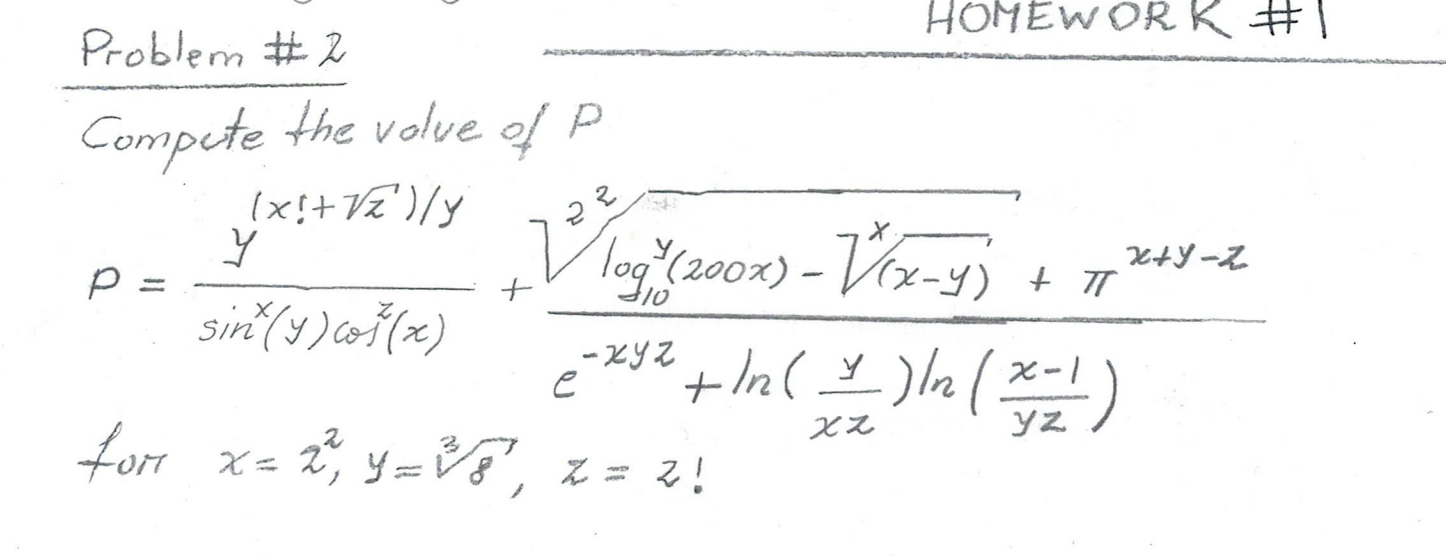 HOMEWORK #1
Problem # 2
Compute the value of P
P = y^((x!+√z)/y) / (sin^x(y) cos^z(x)) + (\sqrt[2^2]{log_10^y(200x) - \sqrt[x]{(x-y)}} + π^(x+y-z)) / (e^(-xyz) + ln(y/(xz)) ln((x-1)/(yz)))
for x = 2^2, y = ∛8, z = 2!